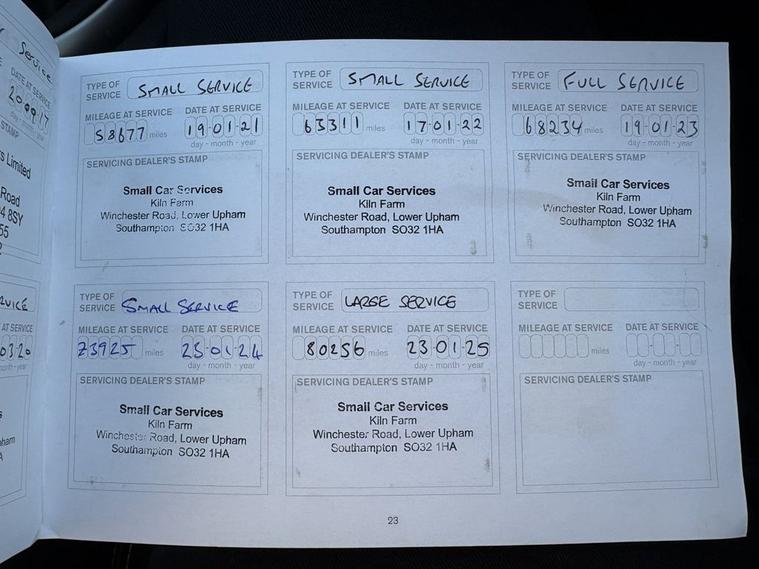 Service
DATE AT SERVICE
200917
STAMP
s Limited
Road
4 8SY
55
2
TYPE OF SERVICE SMALL SERVICE
MILEAGE AT SERVICE DATE AT SERVICE
58677 miles 19-01-21
day - month - year
SERVICING DEALER'S STAMP
Small Car Services
Kiln Farm
Winchester Road, Lower Upham
Southampton SO32 1HA
TYPE OF SERVICE SMALL SERVICE
MILEAGE AT SERVICE DATE AT SERVICE
63311 miles 17-01-22
day - month - year
SERVICING DEALER'S STAMP
Small Car Services
Kiln Farm
Winchester Road, Lower Upham
Southampton SO32 1HA
TYPE OF SERVICE FULL SERVICE
MILEAGE AT SERVICE DATE AT SERVICE
68234 miles 19-01-23
day - month - year
SERVICING DEALER'S STAMP
Small Car Services
Kiln Farm
Winchester Road, Lower Upham
Southampton SO32 1HA
AT SERVICE
0320
TYPE OF SERVICE SMALL SERVICE
MILEAGE AT SERVICE DATE AT SERVICE
73925 miles 25-01-24
day - month - year
SERVICING DEALER'S STAMP
Small Car Services
Kiln Farm
Winchester Road, Lower Upham
Southampton SO32 1HA
TYPE OF SERVICE LARGE SERVICE
MILEAGE AT SERVICE DATE AT SERVICE
80256 miles 23-01-25
day - month - year
SERVICING DEALER'S STAMP
Small Car Services
Kiln Farm
Winchester Road, Lower Upham
Southampton SO32 1HA
TYPE OF SERVICE
MILEAGE AT SERVICE DATE AT SERVICE
miles
day - month - year
SERVICING DEALER'S STAMP
23